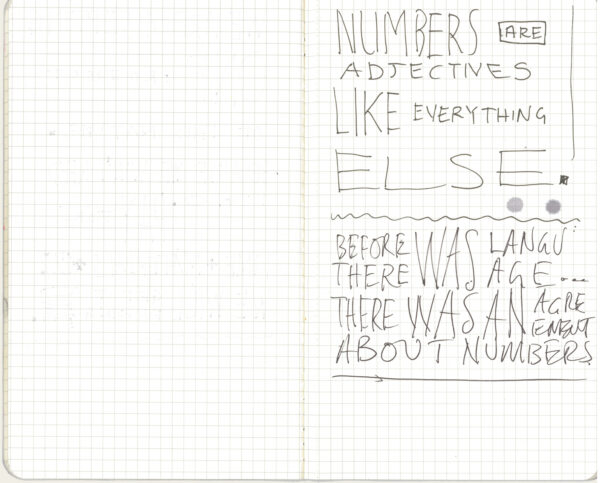 NUMBERS ARE
ADJECTIVES
LIKE EVERYTHING
ELSE.
BEFORE WAS LANGU
THERE AGE...
THERE WAS AN AGRE
EMENT
ABOUT NUMBERS.